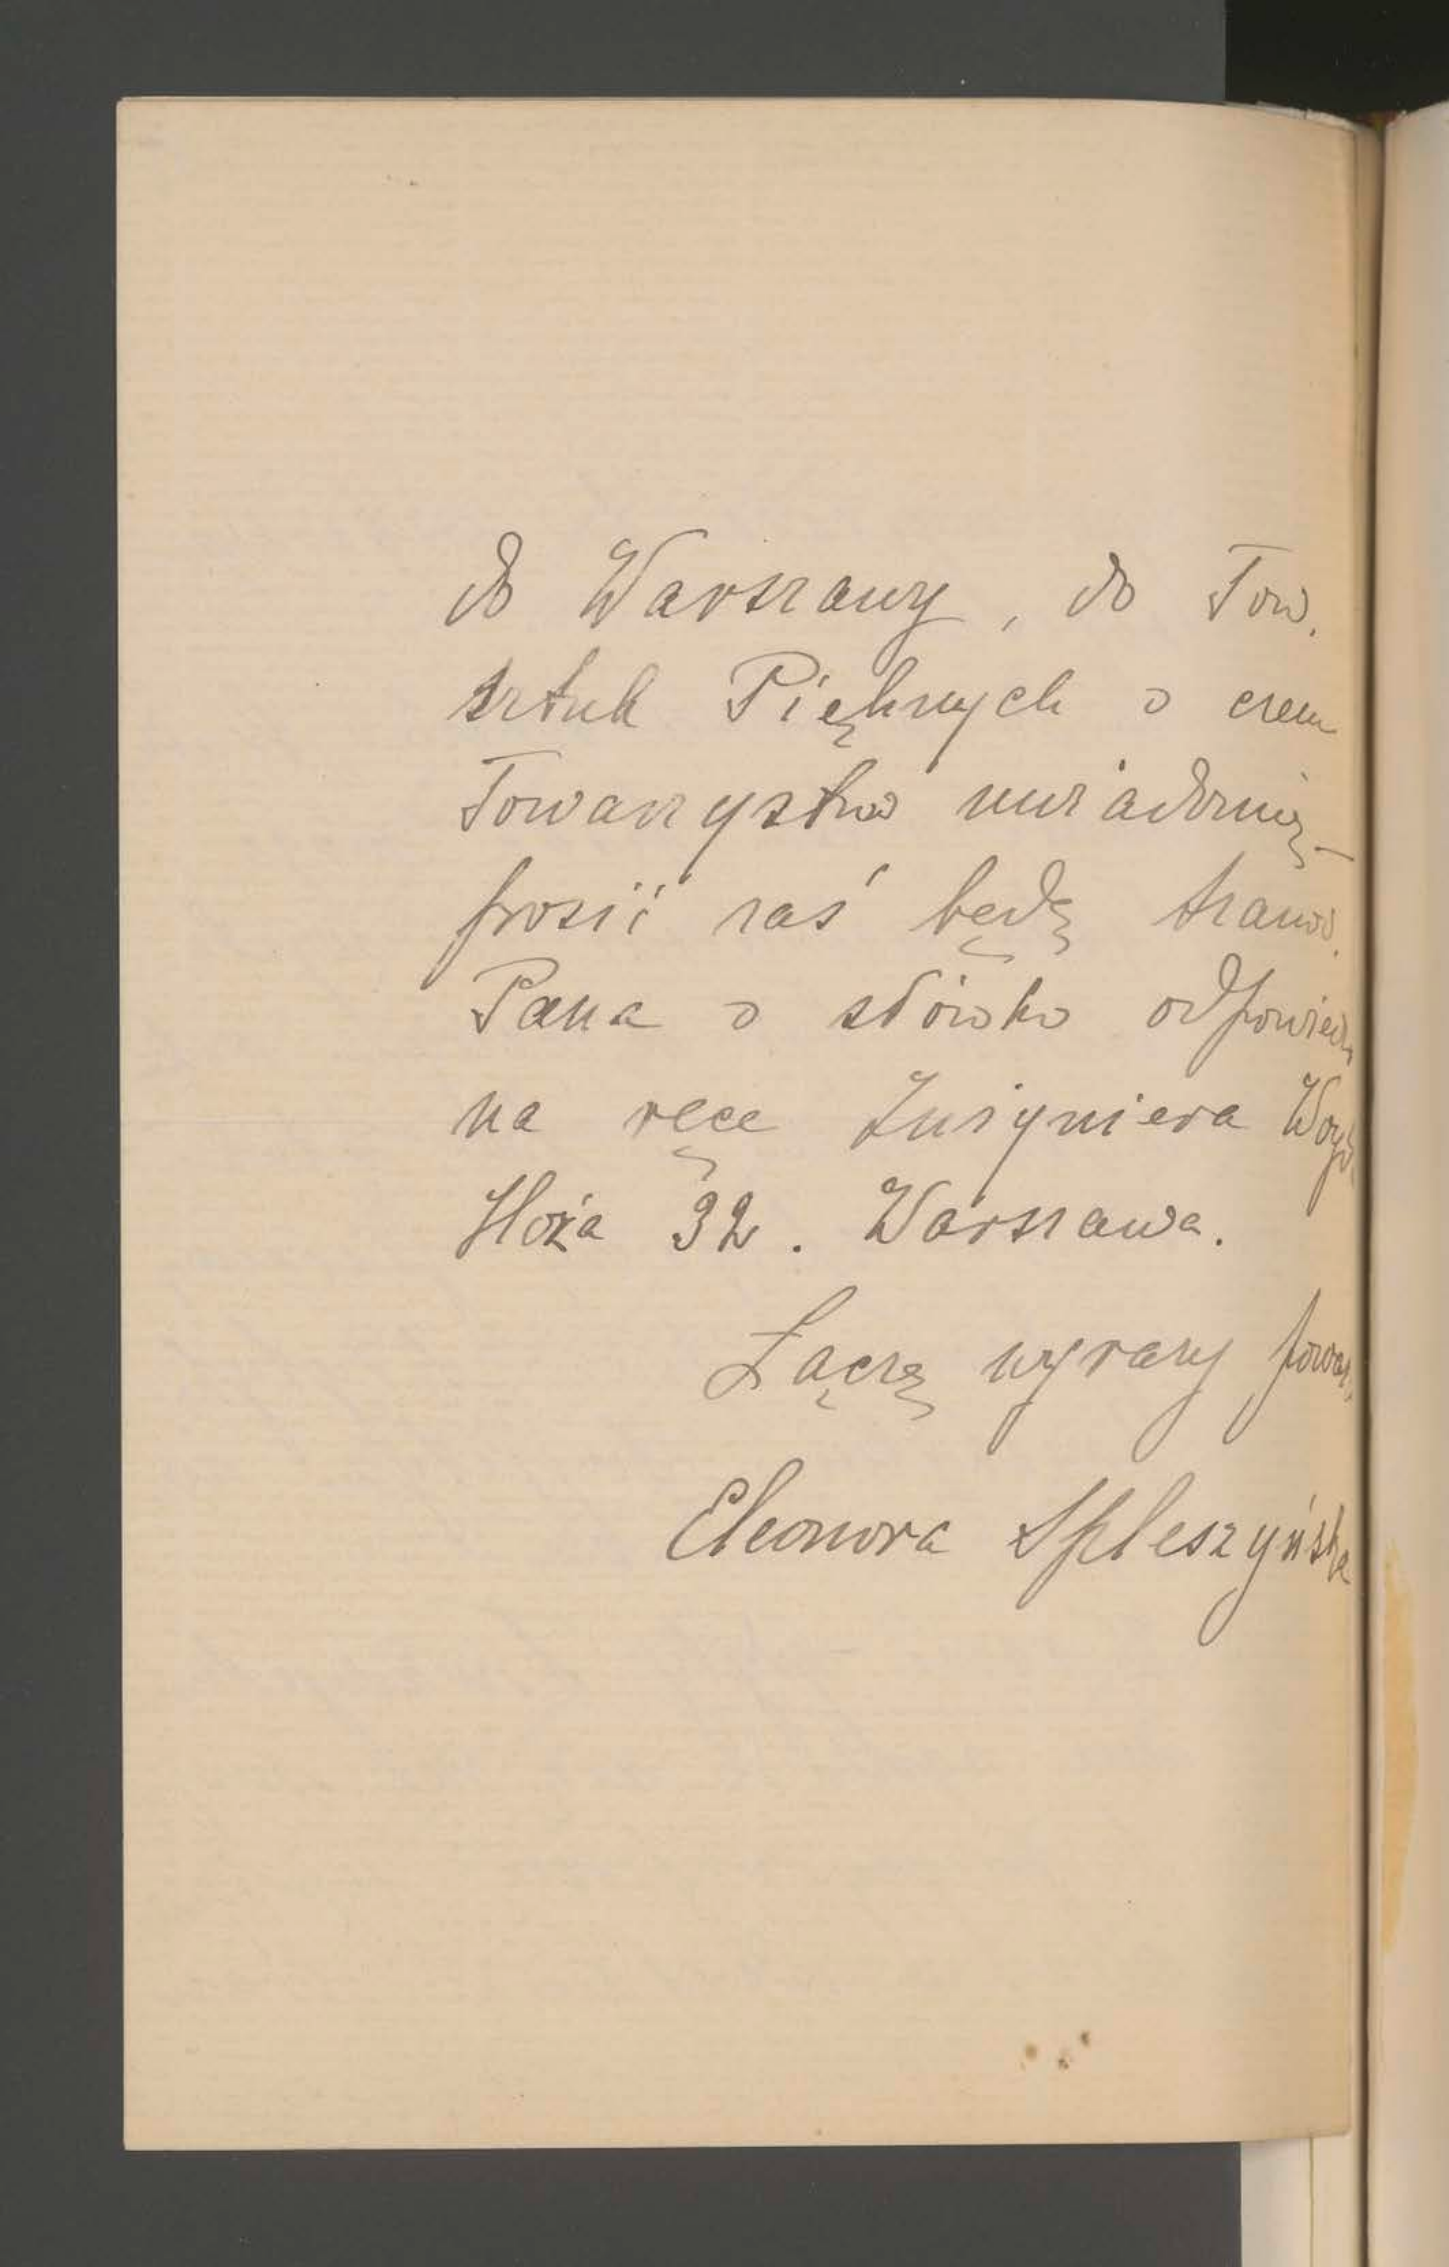 do Warszawy, do Tow.
sztuk Pięknych o czem
Towarzystwo uwiadomię –
prosić zaś będę Szanow.
Pana o słówko odpowiedzi
na ręce Inżyniera
Hoża 32. Warszawa.
Łączę wyrazy
Eleonora Spleszyńska